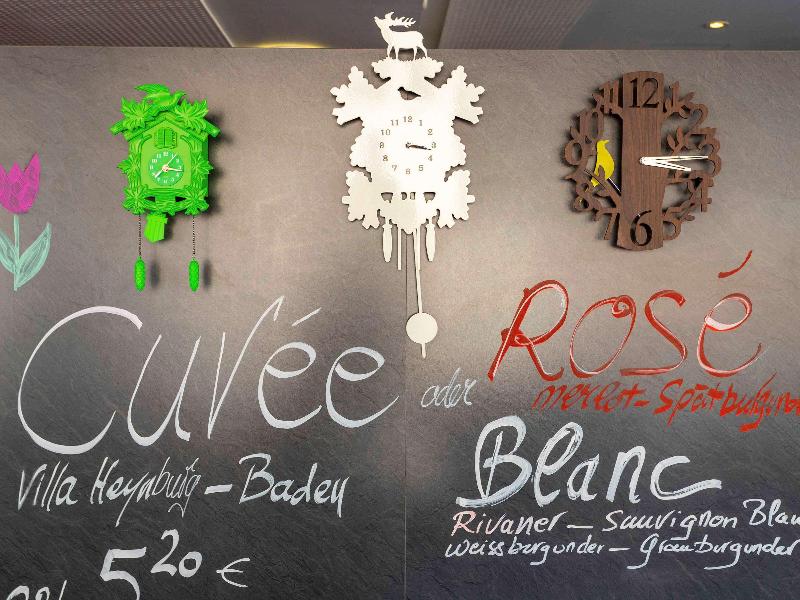 12
6
11 12 1
10 2
9 3
8 4
7 6 5
12
3
8
7 6
Cuvée
Villa Heynburg - Baden
5 20 €
oder
Rosé
merlot - Spätburgun
Blanc
Rivaner - Sauvignon Blan
weissburgunder - Grauburgunder